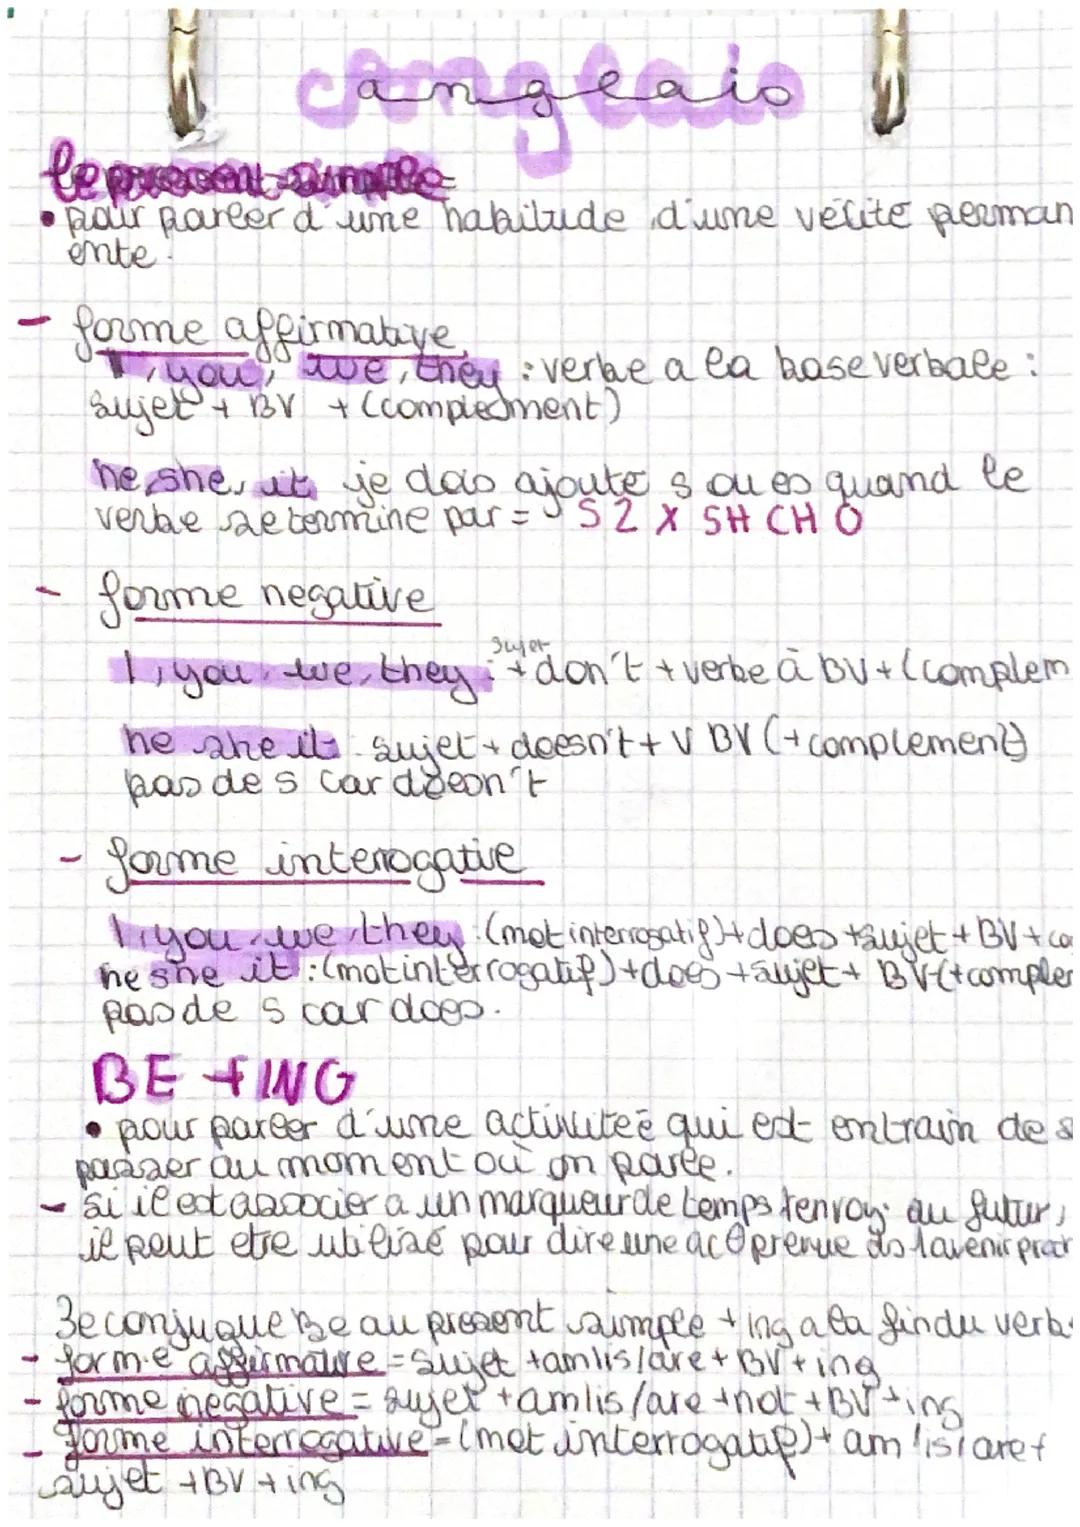 anglais
le present simple =
• pour parler d'une habitude, d'une vérité perman
ente.
- forme affirmative
I, you, we, they : verbe a la base verbale :
sujet + BV + (complement)
he, she, it je dois ajouté s ou es quand le
verbe se termine par = S Z X SH CH O
- forme negative
sujet
I, you, we, they : + don't + verbe à BV + (complem
he she it : sujet + doesn't + V BV (+ complement)
pas de s car
- forme interrogative
I, you, we, they : (mot interrogatif) + does + sujet + BV + co
he she it : (mot interrogatif) + does + sujet + BV (+ complem
pas de s car does.
BE + ING
• pour parler d'une activiteé qui est entrain de s
passer au moment où on parle.
- si il est associer a un marqueur de temps renvoy. au futur,
il peut etre utilisé pour dire une act° prevue ds l'avenir proch
Je conjugue Be au present simple + ing a la fin du verb
- forme affirmative = sujet + am/is/are + BV + ing
- forme negative = sujet + am/is/are + not + BV + ing
- forme interrogative = (mot interrogatif) + am/is/are +
sujet + BV + ing